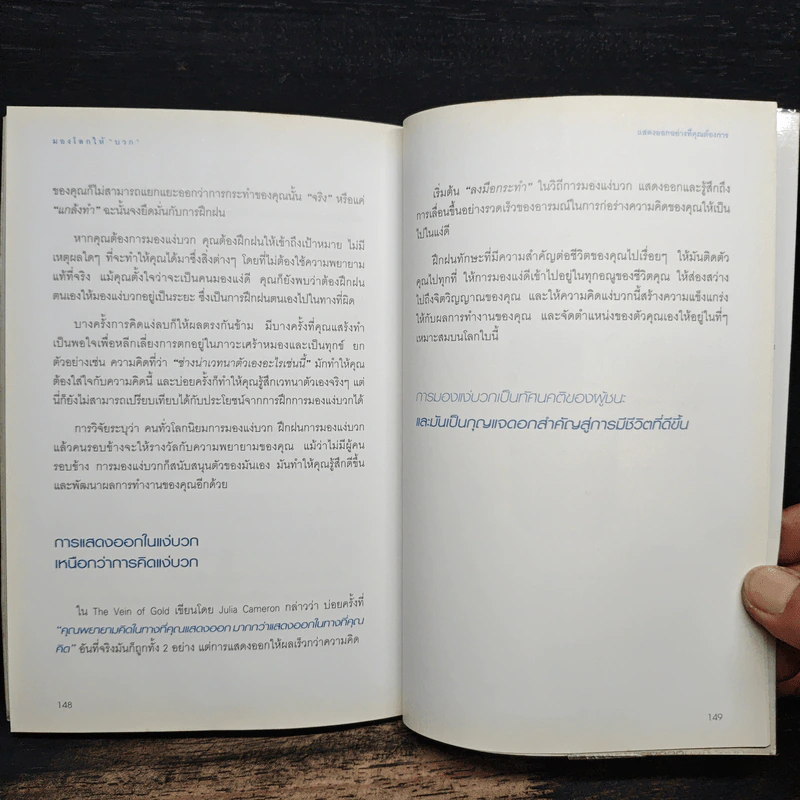 มองโลกให้ "บวก"
ของคุณก็ไม่สามารถแยกแยะออกว่าการกระทำของคุณนั้น "จริง" หรือแค่
"แกล้งทำ" ฉะนั้นจงยึดมั่นกับการฝึกฝน
หากคุณต้องการมองแง่บวก คุณต้องฝึกฝนให้เข้าถึงเป้าหมาย ไม่มี
เหตุผลใดๆ ที่จะทำให้คุณได้มาซึ่งสิ่งต่างๆ โดยที่ไม่ต้องใช้ความพยายาม
แท้ที่จริง แม้คุณตั้งใจว่าจะเป็นคนมองแง่ดี คุณก็ยังพบว่าต้องฝึกฝน
ตนเองให้มองแง่บวกอยู่เป็นระยะ ซึ่งเป็นการฝึกฝนตนเองไปในทางที่ผิด
บางครั้งการคิดแง่ลบก็ให้ผลตรงกันข้าม มีบางครั้งที่คุณแสร้งทำ
เป็นพอใจเพื่อหลีกเลี่ยงการตกอยู่ในภาวะเศร้าหมองและเป็นทุกข์ ยก
ตัวอย่างเช่น ความคิดที่ว่า "ช่างน่าเวทนาตัวเองอะไรเช่นนี้" มักทำให้คุณ
ต้องใส่ใจกับความคิดนี้ และบ่อยครั้งก็ทำให้คุณรู้สึกเวทนาตัวเองจริงๆ แต่
นี่ก็ยังไม่สามารถเปรียบเทียบได้กับประโยชน์จากการฝึกการมองแง่บวกได้
การวิจัยระบุว่า คนทั่วโลกนิยมการมองแง่บวก ฝึกฝนการมองแง่บวก
แล้วคนรอบข้างจะให้รางวัลกับความพยายามของคุณ แม้ว่าไม่มีผู้คน
รอบข้าง การมองแง่บวกก็สนับสนุนตัวของมันเอง มันทำให้คุณรู้สึกดีขึ้น
และพัฒนาผลการทำงานของคุณอีกด้วย
การแสดงออกในแง่บวก
เหนือกว่าการคิดแง่บวก
ใน The Vein of Gold เขียนโดย Julia Cameron กล่าวว่า บ่อยครั้งที่
"คุณพยายามคิดในทางที่คุณแสดงออก มากกว่าแสดงออกในทางที่คุณ
คิด" อันที่จริงมันก็ถูกทั้ง 2 อย่าง แต่การแสดงออกให้ผลเร็วกว่าความคิด
148
แสดงออกอย่างที่คุณต้องการ
เริ่มต้น "ลงมือกระทำ" ในวิถีการมองแง่บวก แสดงออกและรู้สึกถึง
การเลื่อนขึ้นอย่างรวดเร็วของอารมณ์ในการก่อร่างความคิดของคุณให้เป็น
ไปในแง่ดี
ฝึกฝนทักษะที่มีความสำคัญต่อชีวิตของคุณไปเรื่อยๆ ให้มันติดตัว
คุณไปทุกที่ ให้การมองแง่ดีเข้าไปอยู่ในทุกอณูของชีวิตคุณ ให้ส่องสว่าง
ไปถึงจิตวิญญาณของคุณ และให้ความคิดแง่บวกนี้สร้างความแข็งแกร่ง
ให้กับผลการทำงานของคุณ และจัดตำแหน่งของตัวคุณเองให้อยู่ในที่ๆ
เหมาะสมบนโลกใบนี้
การมองแง่บวกเป็นทัศนคติของผู้ชนะ
และมันเป็นกุญแจดอกสำคัญสู่การมีชีวิตที่ดีขึ้น
149